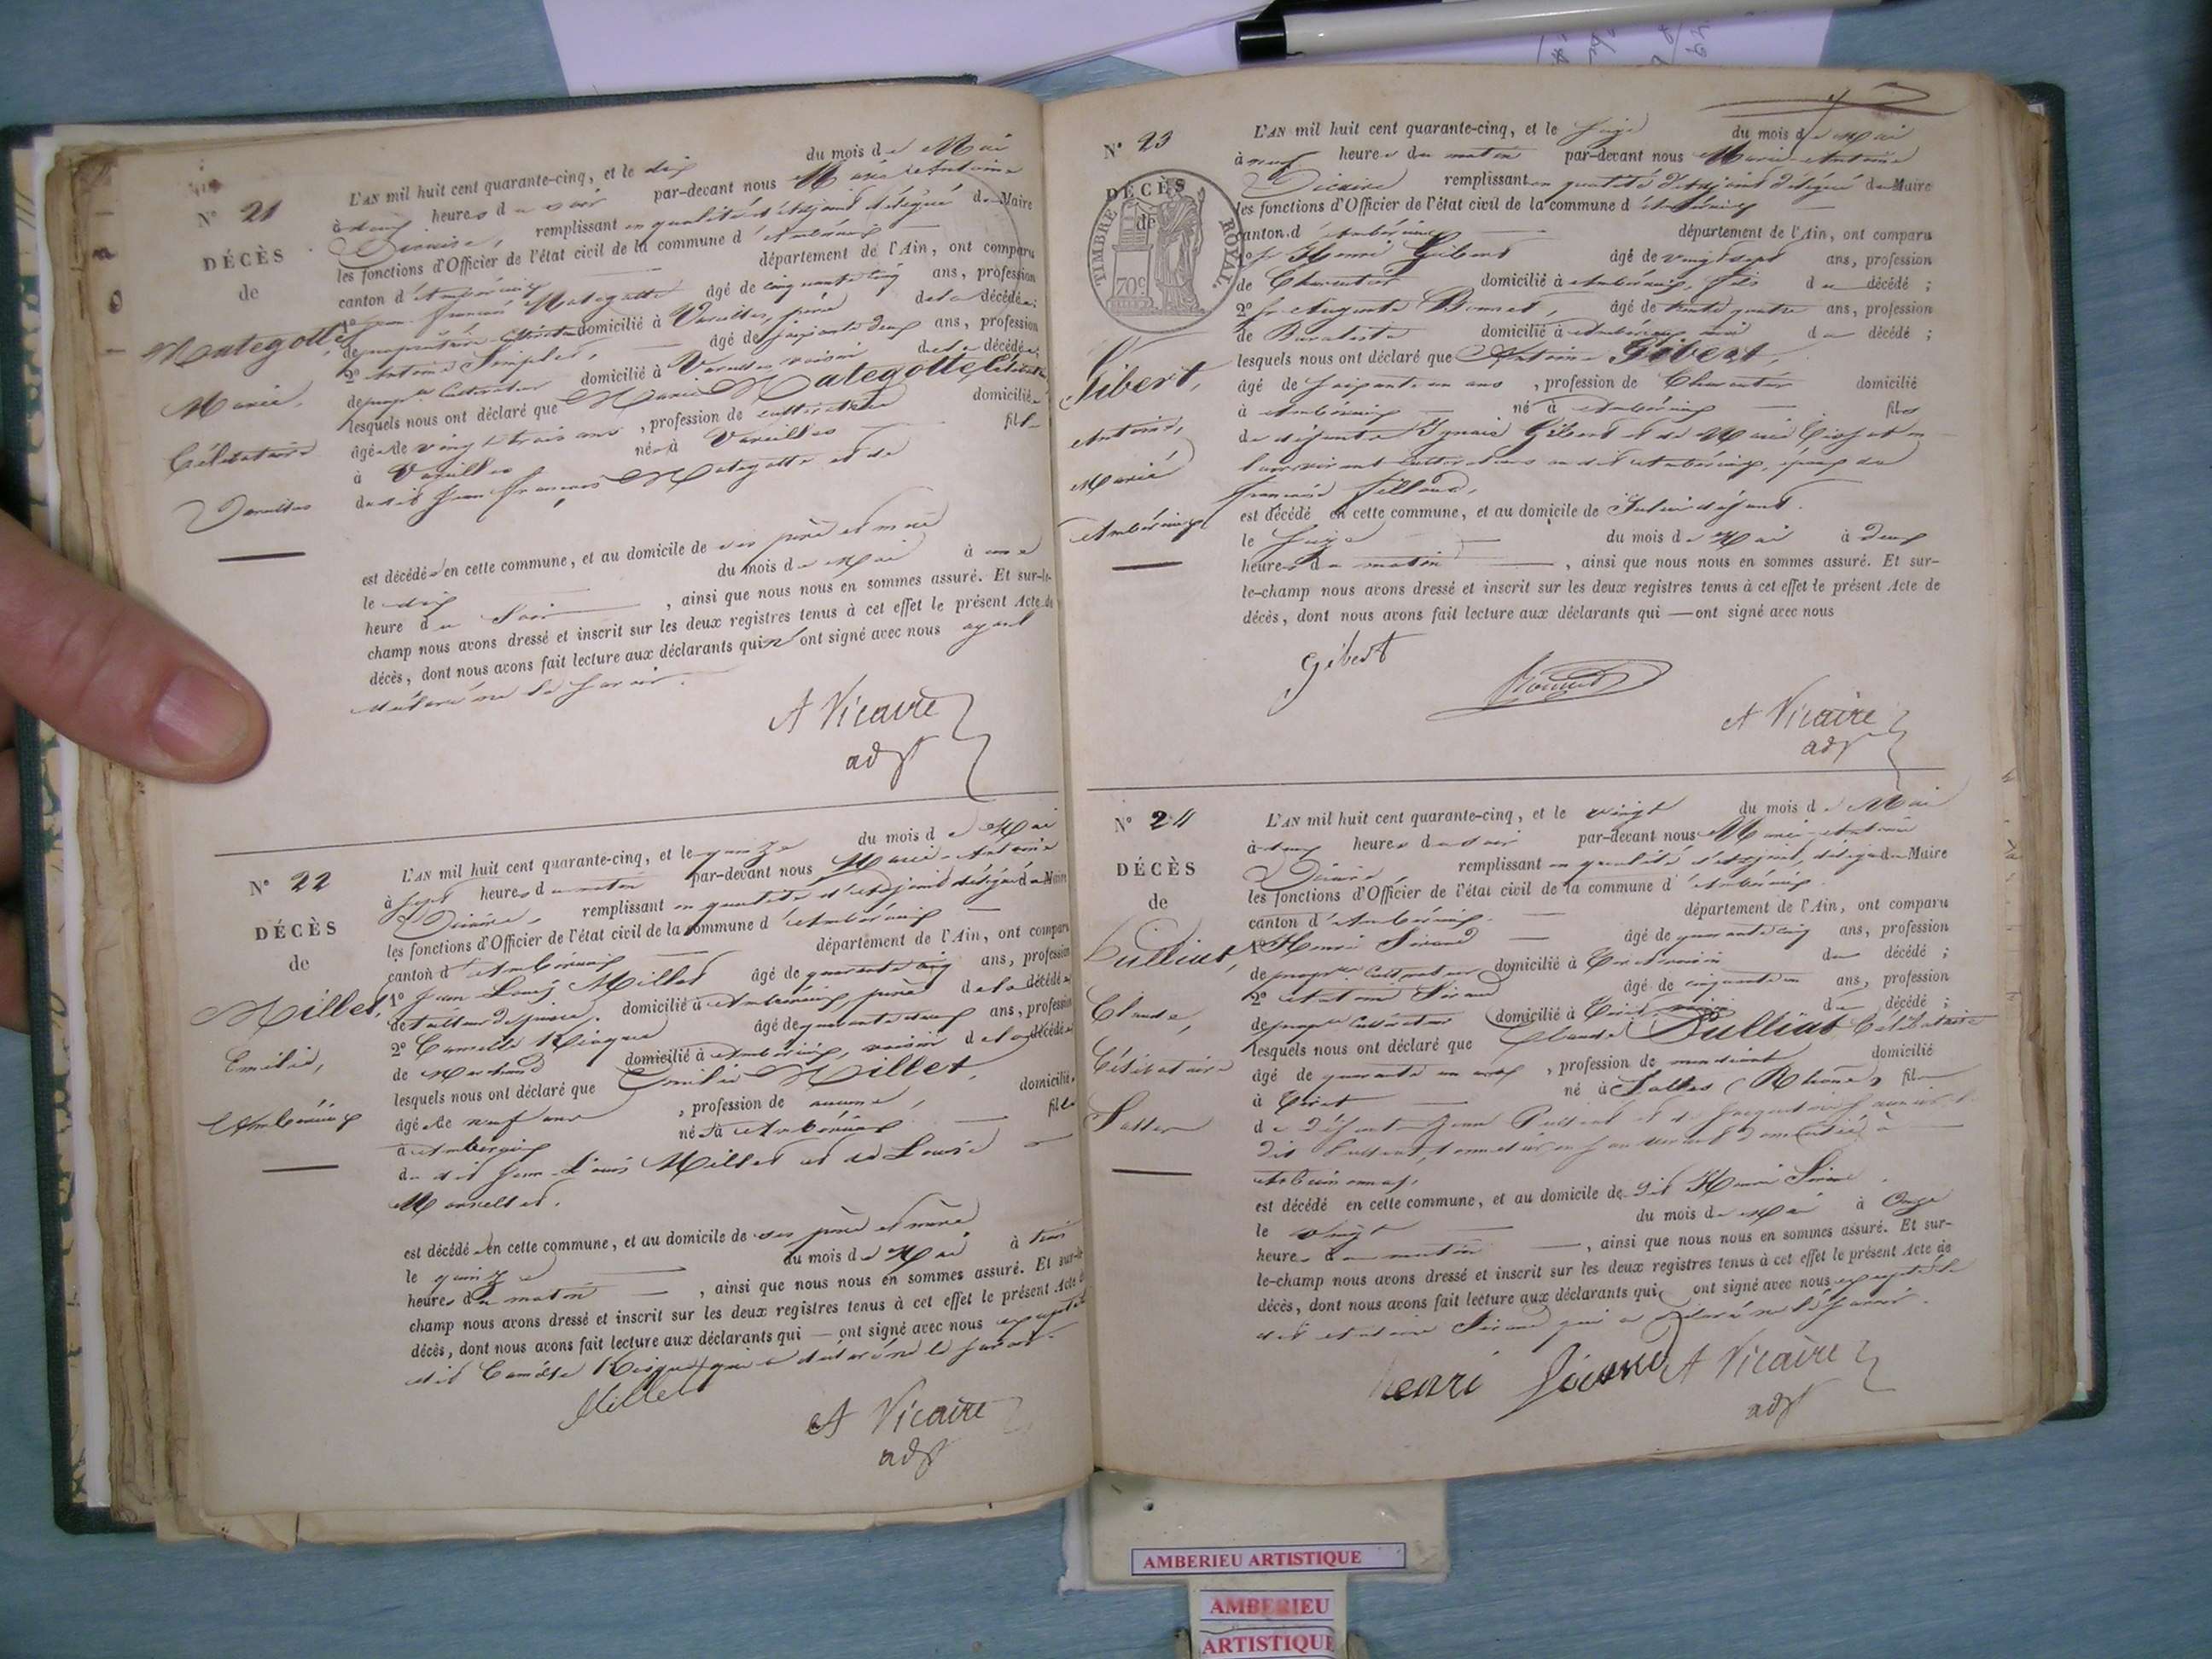 N° 21
DÉCÈS
de
Mategotte,
Marie,
Célibataire
Vareilles
L'AN mil huit cent quarante-cinq, et le dix du mois de Mai
à deux heures du soir par-devant nous Marie Antoine
Vicaire, remplissant en qualité d'adjoint délégué du Maire
les fonctions d'Officier de l'état civil de la commune d'Ambérieux
canton d'Ambérieux département de l'Ain, ont comparu
1° Jean François Mategotte âgé de cinquante cinq ans, profession
de propriétaire domicilié à Vareilles, père de la décédée;
2° Antoine âgé de soixante deux ans, profession
de prop.re Cultivateur domicilié à Vareilles, voisin de la décédée;
lesquels nous ont déclaré que Marie Mategotte, Célibataire
âgée de vingt trois ans, profession de cultivatrice domiciliée
à Vareilles née à Vareilles fille
du dit Jean François Mategotte et de
est décédée en cette commune, et au domicile de ses père et mère
le dix du mois de Mai à une
heure du Soir, ainsi que nous nous en sommes assuré. Et sur-le-
champ nous avons dressé et inscrit sur les deux registres tenus à cet effet le présent Acte de
décès, dont nous avons fait lecture aux déclarants qui n'ont signé avec nous ayant
déclaré ne le savoir.
A Vicaire
adjt
N° 22
DÉCÈS
de
Millet,
Emilie,
Ambérieux
L'AN mil huit cent quarante-cinq, et le quinze du mois de Mai
à sept heures du matin par-devant nous Marie-Antoine
Vicaire, remplissant en qualité d'adjoint délégué du Maire
les fonctions d'Officier de l'état civil de la commune d'Ambérieux
canton d'Ambérieux département de l'Ain, ont comparu
1° Jean Louis Millet âgé de quarante cinq ans, profession
de tailleur de pierre, domicilié à Ambérieux, père de la décédée;
2° Camille âgé de quarante deux ans, profession
de Marchand domicilié à Ambérieux, voisin de la décédée
lesquels nous ont déclaré que Emilie Millet,
âgée de neuf ans, profession de aucune, domiciliée
à Ambérieux née à Ambérieux fille
du dit Jean-Louis Millet et de Louise
est décédée en cette commune, et au domicile de ses père et mère
le quinze du mois de Mai à trois
heures du matin, ainsi que nous nous en sommes assuré. Et sur-le-
champ nous avons dressé et inscrit sur les deux registres tenus à cet effet le présent Acte de
décès, dont nous avons fait lecture aux déclarants qui — ont signé avec nous excepté le
dit Camille qui a déclaré ne le savoir.
Millet
A Vicaire
adjt
N° 23
DÉCÈS
de
TIMBRE ROYAL
70c
Gibert,
Antoine,
Marié
Ambérieux
L'AN mil huit cent quarante-cinq, et le seize du mois de Mai
à neuf heures du matin par-devant nous Marie-Antoine
Vicaire remplissant en qualité d'adjoint délégué du Maire
les fonctions d'Officier de l'état civil de la commune d'Ambérieux
canton d'Ambérieux département de l'Ain, ont comparu
1° Sr Henri Gibert âgé de vingt sept ans, profession
de Charcutier domicilié à Ambérieux, fils du décédé;
2° Sr Auguste Bonnet, âgé de trente quatre ans, profession
de Buraliste domicilié à Ambérieux ami du décédé;
lesquels nous ont déclaré que Antoine Gibert,
âgé de soixante un ans, profession de Charcutier domicilié
à Ambérieux né à Ambérieux fils
de défunts Ignace Gibert et de Marie
vivant cultivateurs au dit Ambérieux, époux de
Françoise
est décédé en cette commune, et au domicile de lui défunt.
le seize du mois de Mai à deux
heures du matin, ainsi que nous nous en sommes assuré. Et sur-
le-champ nous avons dressé et inscrit sur les deux registres tenus à cet effet le présent Acte de
décès, dont nous avons fait lecture aux déclarants qui — ont signé avec nous
Gibert
Bonnet
A Vicaire
adjt
N° 24
DÉCÈS
de
Pulliat,
Claude,
Célibataire
Salles
L'AN mil huit cent quarante-cinq, et le vingt du mois de Mai
à deux heures du soir par-devant nous Marie-Antoine
Vicaire remplissant en qualité d'adjoint, délégué du Maire
les fonctions d'Officier de l'état civil de la commune d'Ambérieux
canton d'Ambérieux département de l'Ain, ont comparu
1° Henri Sirand âgé de quarante cinq ans, profession
de prop.re Cultivateur domicilié à Tiret voisin du décédé;
2° Antoine Sirand âgé de cinquante un ans, profession
de prop.re Cultivateur domicilié à Tiret, voisin du décédé;
lesquels nous ont déclaré que Claude Pulliat Célibataire
âgé de quarante un ans, profession de mendiant domicilié
à Tiret né à Salles (Rhône) fils
de défunt Jean Pulliat et de
dit Pulliat, domicilié à
est décédé en cette commune, et au domicile de dit Henri Sirand
le vingt du mois de Mai à Onze
heures du matin, ainsi que nous nous en sommes assuré. Et sur-
le-champ nous avons dressé et inscrit sur les deux registres tenus à cet effet le présent Acte de
décès, dont nous avons fait lecture aux déclarants qui ont signé avec nous excepté le
dit Antoine Sirand qui a déclaré ne le savoir.
henri Sirand A Vicaire
adjt
AMBERIEU ARTISTIQUE
AMBERIEU
ARTISTIQUE